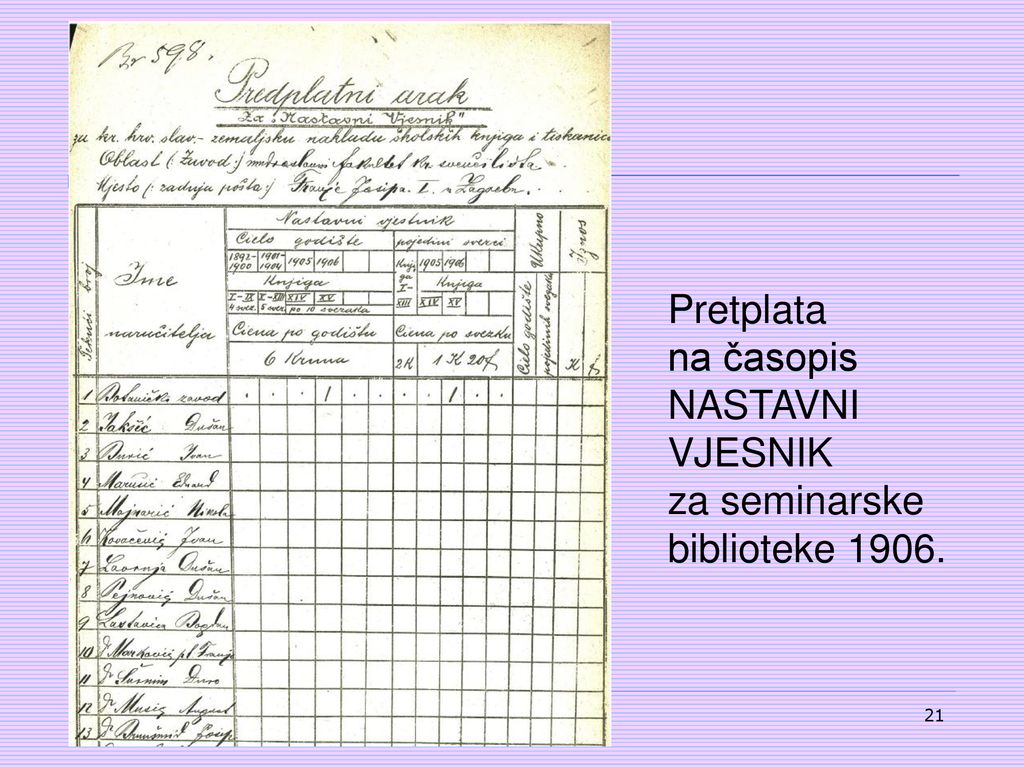 Br 598.
Predplatni arak
Za „Nastavni Vjesnik"
za kr. hrv. slav.- zemaljsku nakladu školskih knjiga i tiskanica
Oblast (: Zavod :) mudroslovni fakultet kr sveučilišta
Mjesto (: zadnja pošta:) Franje Josipa I. u Zagrebu.
Tekući broj
Ime
naručitelja
Nastavni vjestnik
Cielo godište
pojedini svezci
1892-1900
1901-1904
1905
1906
Knjiga I-XIII
1905
1906
Knjiga
I-IX
X-XIII
XIV
XV
XIV
XV
4 svez.
5 svez.
po 10 svezaka
Ciena po godištu
Ciena po svezku
6 Kruna
2K
1 K 20 f
Ukupno
Cielo godište
pojedinih svezaka
Iznos
K
f
1 Botanički zavod
2 Jakšić Dušan
3 Ivan
4 Marusić
5 Majnarić Nikola
6 Kovačević Ivan
7 Dušan
8 Pejnović Dušan
9 Lastavica Bogdan
10 Dr Marković pl. Franjo
11 Dr Šurmin Đuro
12 Dr Musić August
13 Dr Brunšmid Josip
Pretplata
na časopis
NASTAVNI
VJESNIK
za seminarske
biblioteke 1906.
21